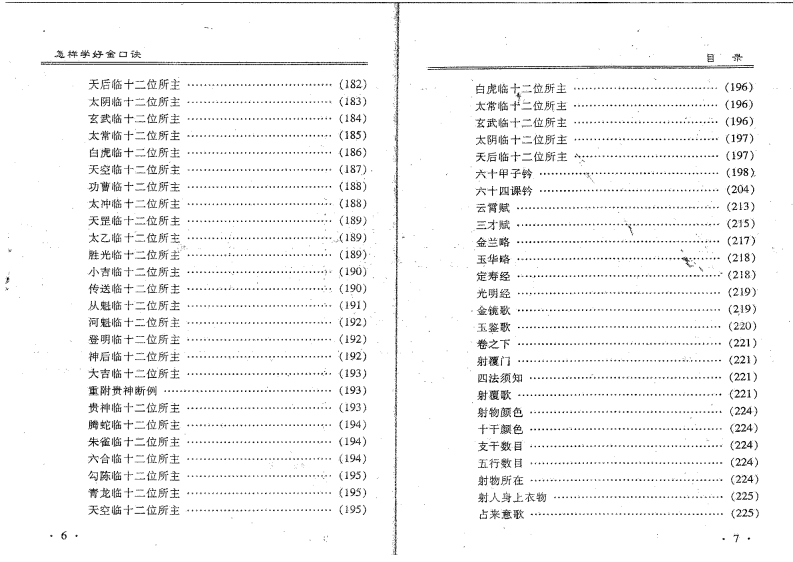 怎样学好金口诀
天后临十二位所主 (182)
太阴临十二位所主 (183)
玄武临十二位所主 (184)
太常临十二位所主 (185)
白虎临十二位所主 (186)
天空临十二位所主 (187)
功曹临十二位所主 (188)
太冲临十二位所主 (188)
天罡临十二位所主 (189)
太乙临十二位所主 (189)
胜光临十二位所主 (189)
小吉临十二位所主 (190)
传送临十二位所主 (190)
从魁临十二位所主 (191)
河魁临十二位所主 (192)
登明临十二位所主 (192)
神后临十二位所主 (192)
大吉临十二位所主 (193)
重附贵神断例 (193)
贵神临十二位所主 (193)
腾蛇临十二位所主 (194)
朱雀临十二位所主 (194)
六合临十二位所主 (194)
勾陈临十二位所主 (195)
青龙临十二位所主 (195)
天空临十二位所主 (195)
· 6 ·
目 录
白虎临十二位所主 (196)
太常临十二位所主 (196)
玄武临十二位所主 (196)
太阴临十二位所主 (197)
天后临十二位所主 (197)
六十甲子钤 (198)
六十四课钤 (204)
云霄赋 (213)
三才赋 (215)
金兰略 (217)
玉华略 (218)
定寿经 (218)
光明经 (219)
金镜歌 (219)
玉鉴歌 (220)
卷之下 (221)
射覆门 (221)
四法须知 (221)
射覆歌 (221)
射物颜色 (224)
十干颜色 (224)
支干数目 (224)
五行数目 (224)
射物所在 (224)
射人身上衣物 (225)
占来意歌 (225)
· 7 ·